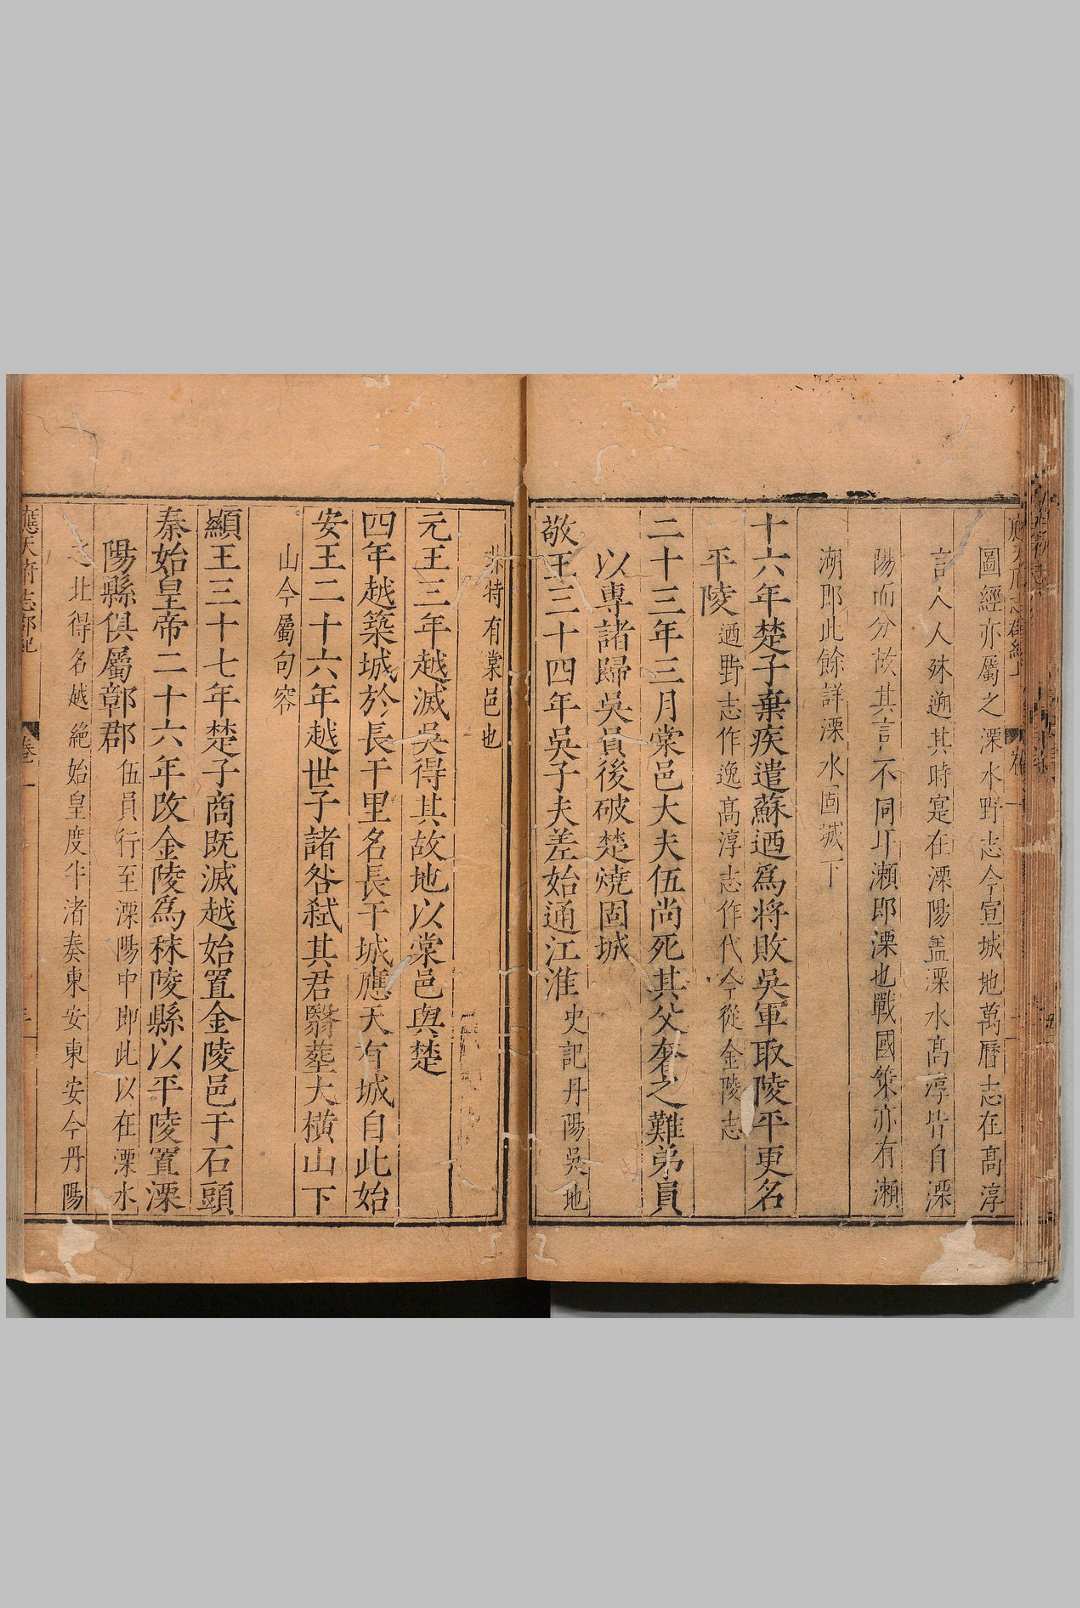 圖經亦屬之溧水野志今宣城地萬曆志在高淳
言人人殊遡其時寔在溧陽盖溧水高淳皆自溧
陽而分故其言不同耳瀨即溧也戰國策亦有瀨
湖即此餘詳溧水固城下
十六年楚子棄疾遣蘇迺爲將敗吳軍取陵平更名
平陵迺野志作逸高淳志作代今從金陵志
二十三年三月棠邑大夫伍尚死其父奢之難弟員
以專諸歸吳員後破楚燒固城
敬王三十四年吳子夫差始通江淮史記丹陽吳地
非特有棠邑也
元王三年越滅吳得其故地以棠邑與楚
四年越築城於長干里名長干城應天有城自此始
安王二十六年越世子諸咎弒其君翳葬大橫山下
山今屬句容
顯王三十七年楚子商既滅越始置金陵邑于石頭
秦始皇帝二十六年改金陵爲秣陵縣以平陵置溧
陽縣俱屬鄣郡伍員行至溧陽中即此以在溧水
之北得名越絶始皇度牛渚奏東安東安今丹陽
應天府志郡紀 卷一